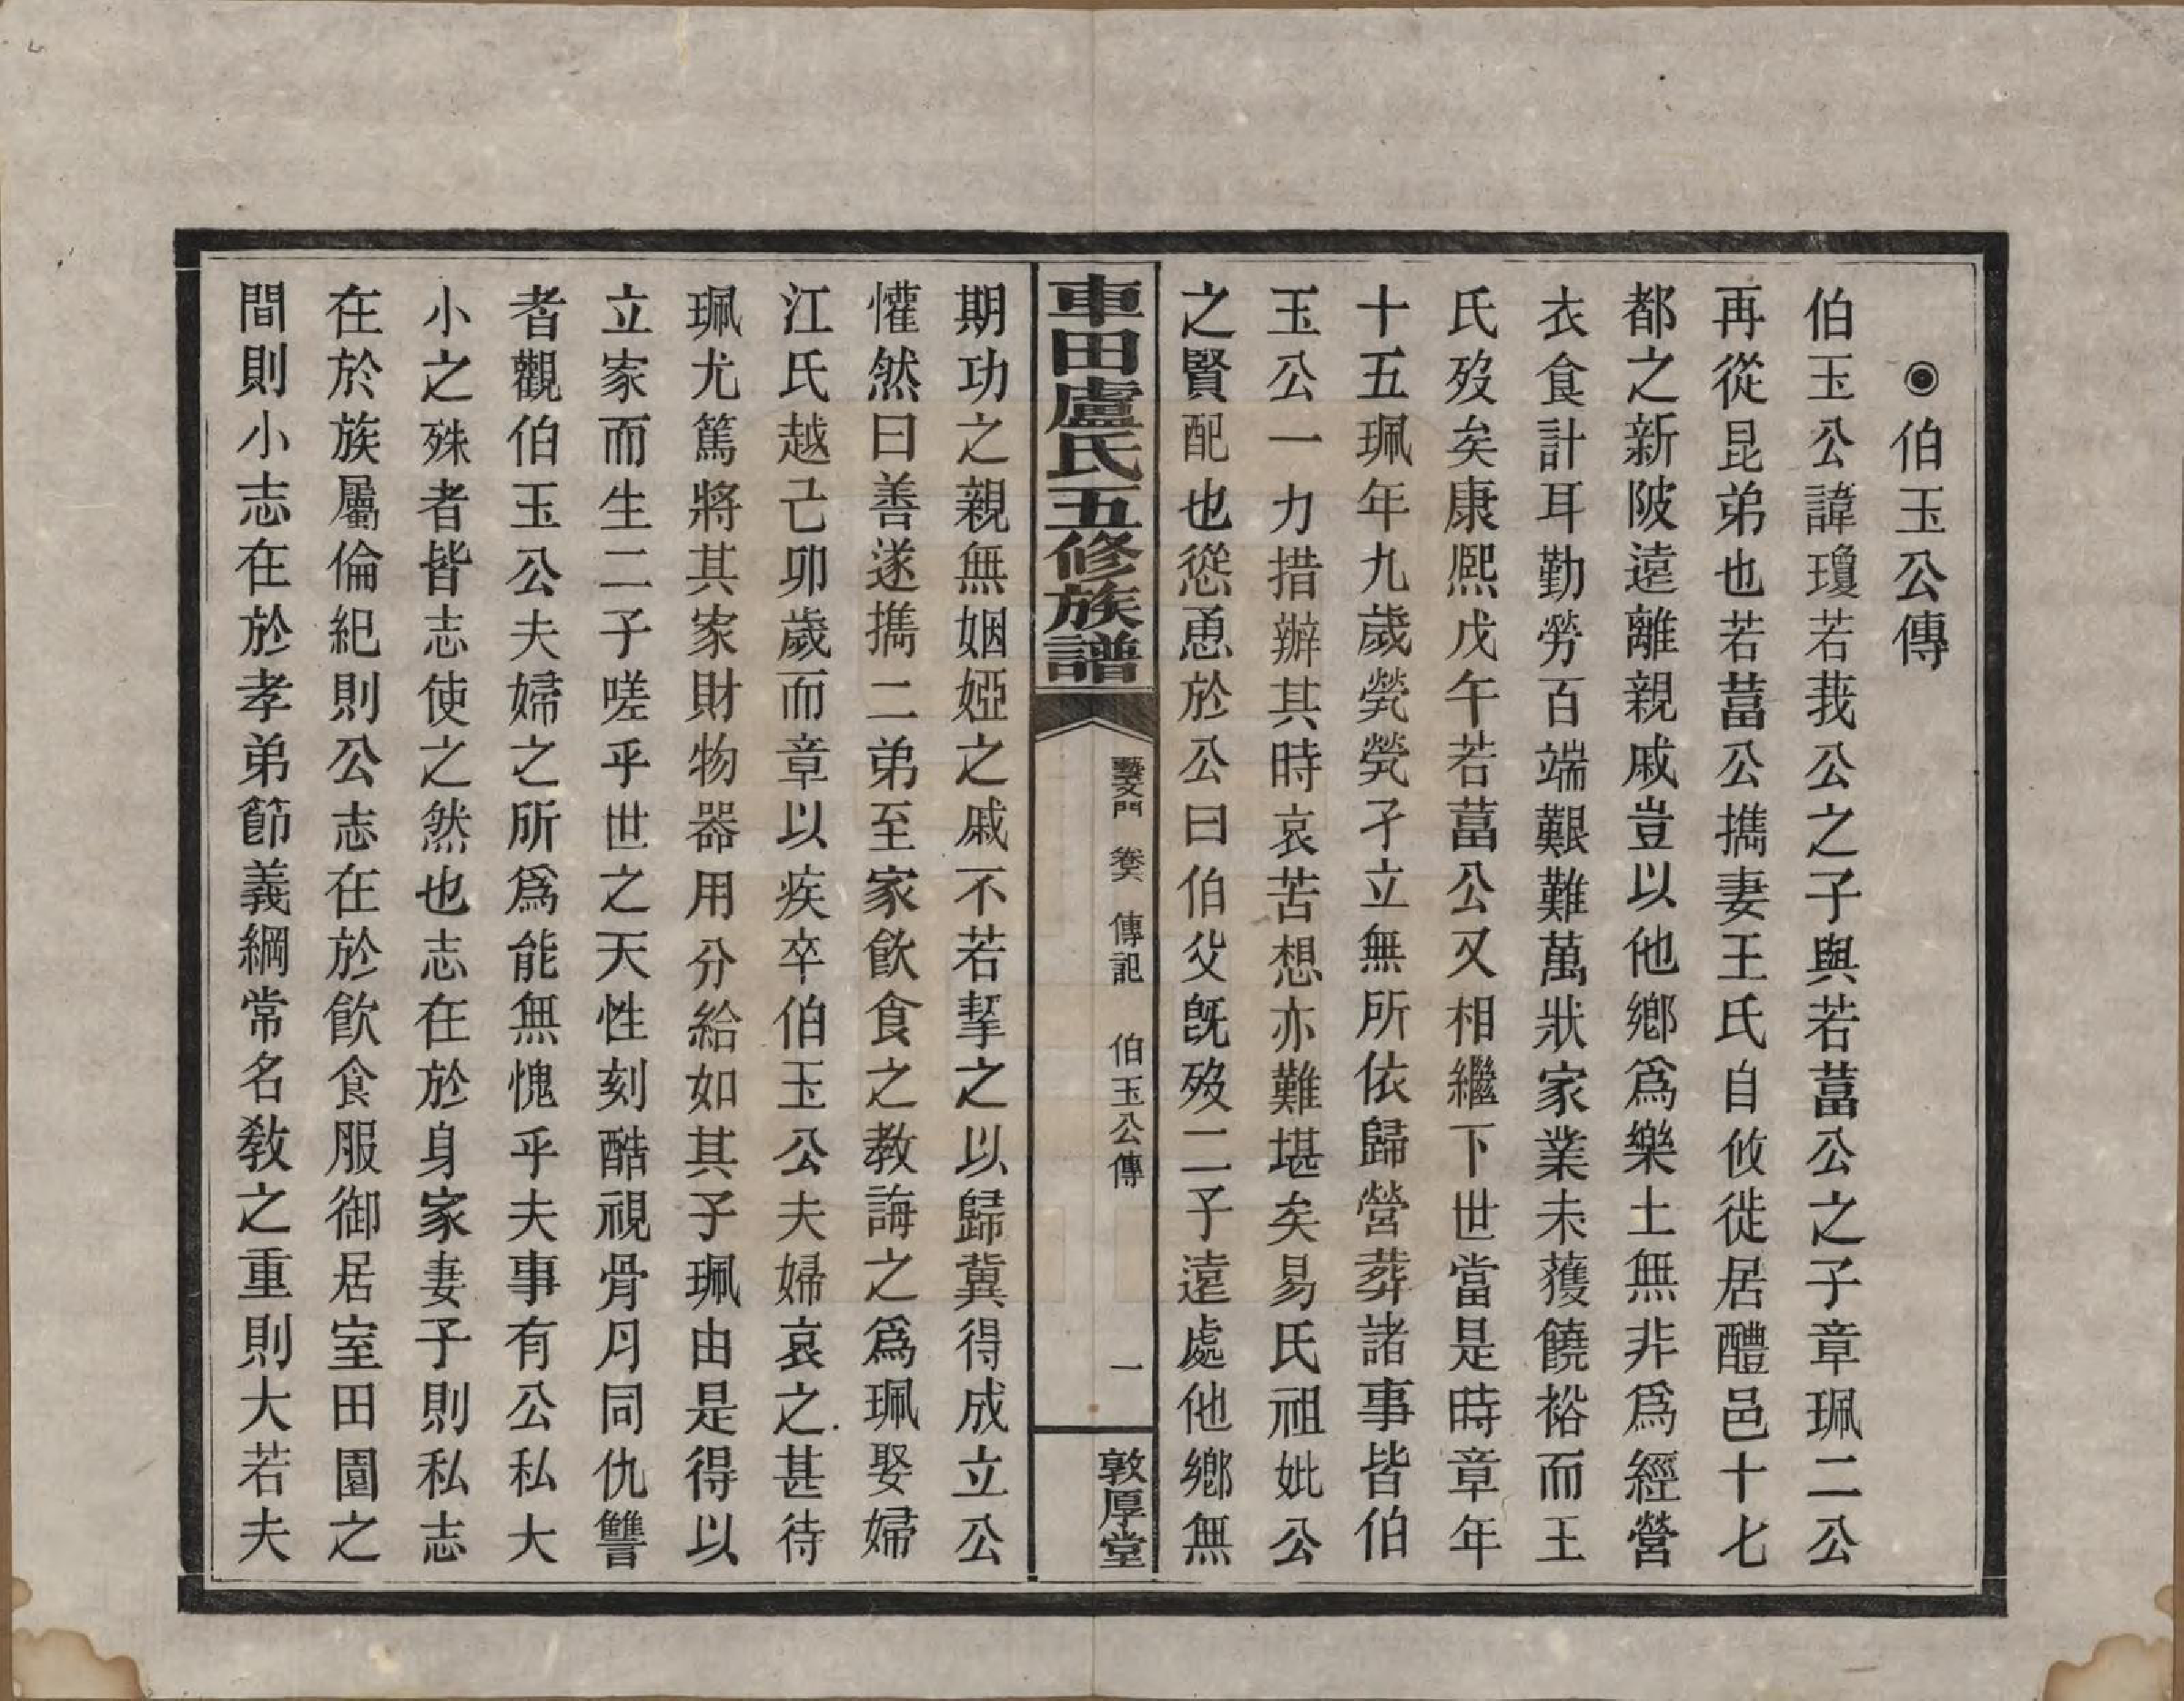 ◉伯玉公傳
伯玉公諱瓊若莪公之子與若葍公之子章珮二公
再從昆弟也若葍公攜妻王氏自攸徙居醴邑十七
都之新陂遠離親戚豈以他鄉爲樂土無非爲經營
衣食計耳勤勞百端艱難萬狀家業未獲饒裕而王
氏歿矣康熙戊午若葍公又相繼下世當是時章年
十五珮年九歲煢煢孑立無所依歸營葬諸事皆伯
玉公一力措辦其時哀苦想亦難堪矣易氏祖妣公
之賢配也慫恿於公曰伯父旣歿二子遠處他鄉無
車田盧氏五修族譜
藝文門 卷六 傳記 伯玉公傳 一 敦厚堂
期功之親無姻婭之戚不若挈之以歸冀得成立公
懽然曰善遂攜二弟至家飮食之教誨之爲珮娶婦
江氏越己卯歲而章以疾卒伯玉公夫婦哀之甚待
珮尤篤將其家財物器用分給如其子珮由是得以
立家而生二子嗟乎世之天性刻酷視骨月同仇讐
者觀伯玉公夫婦之所爲能無愧乎夫事有公私大
小之殊者皆志使之然也志在於身家妻子則私志
在於族屬倫紀則公志在於飮食服御居室田園之
間則小志在於孝弟節義綱常名敎之重則大若夫